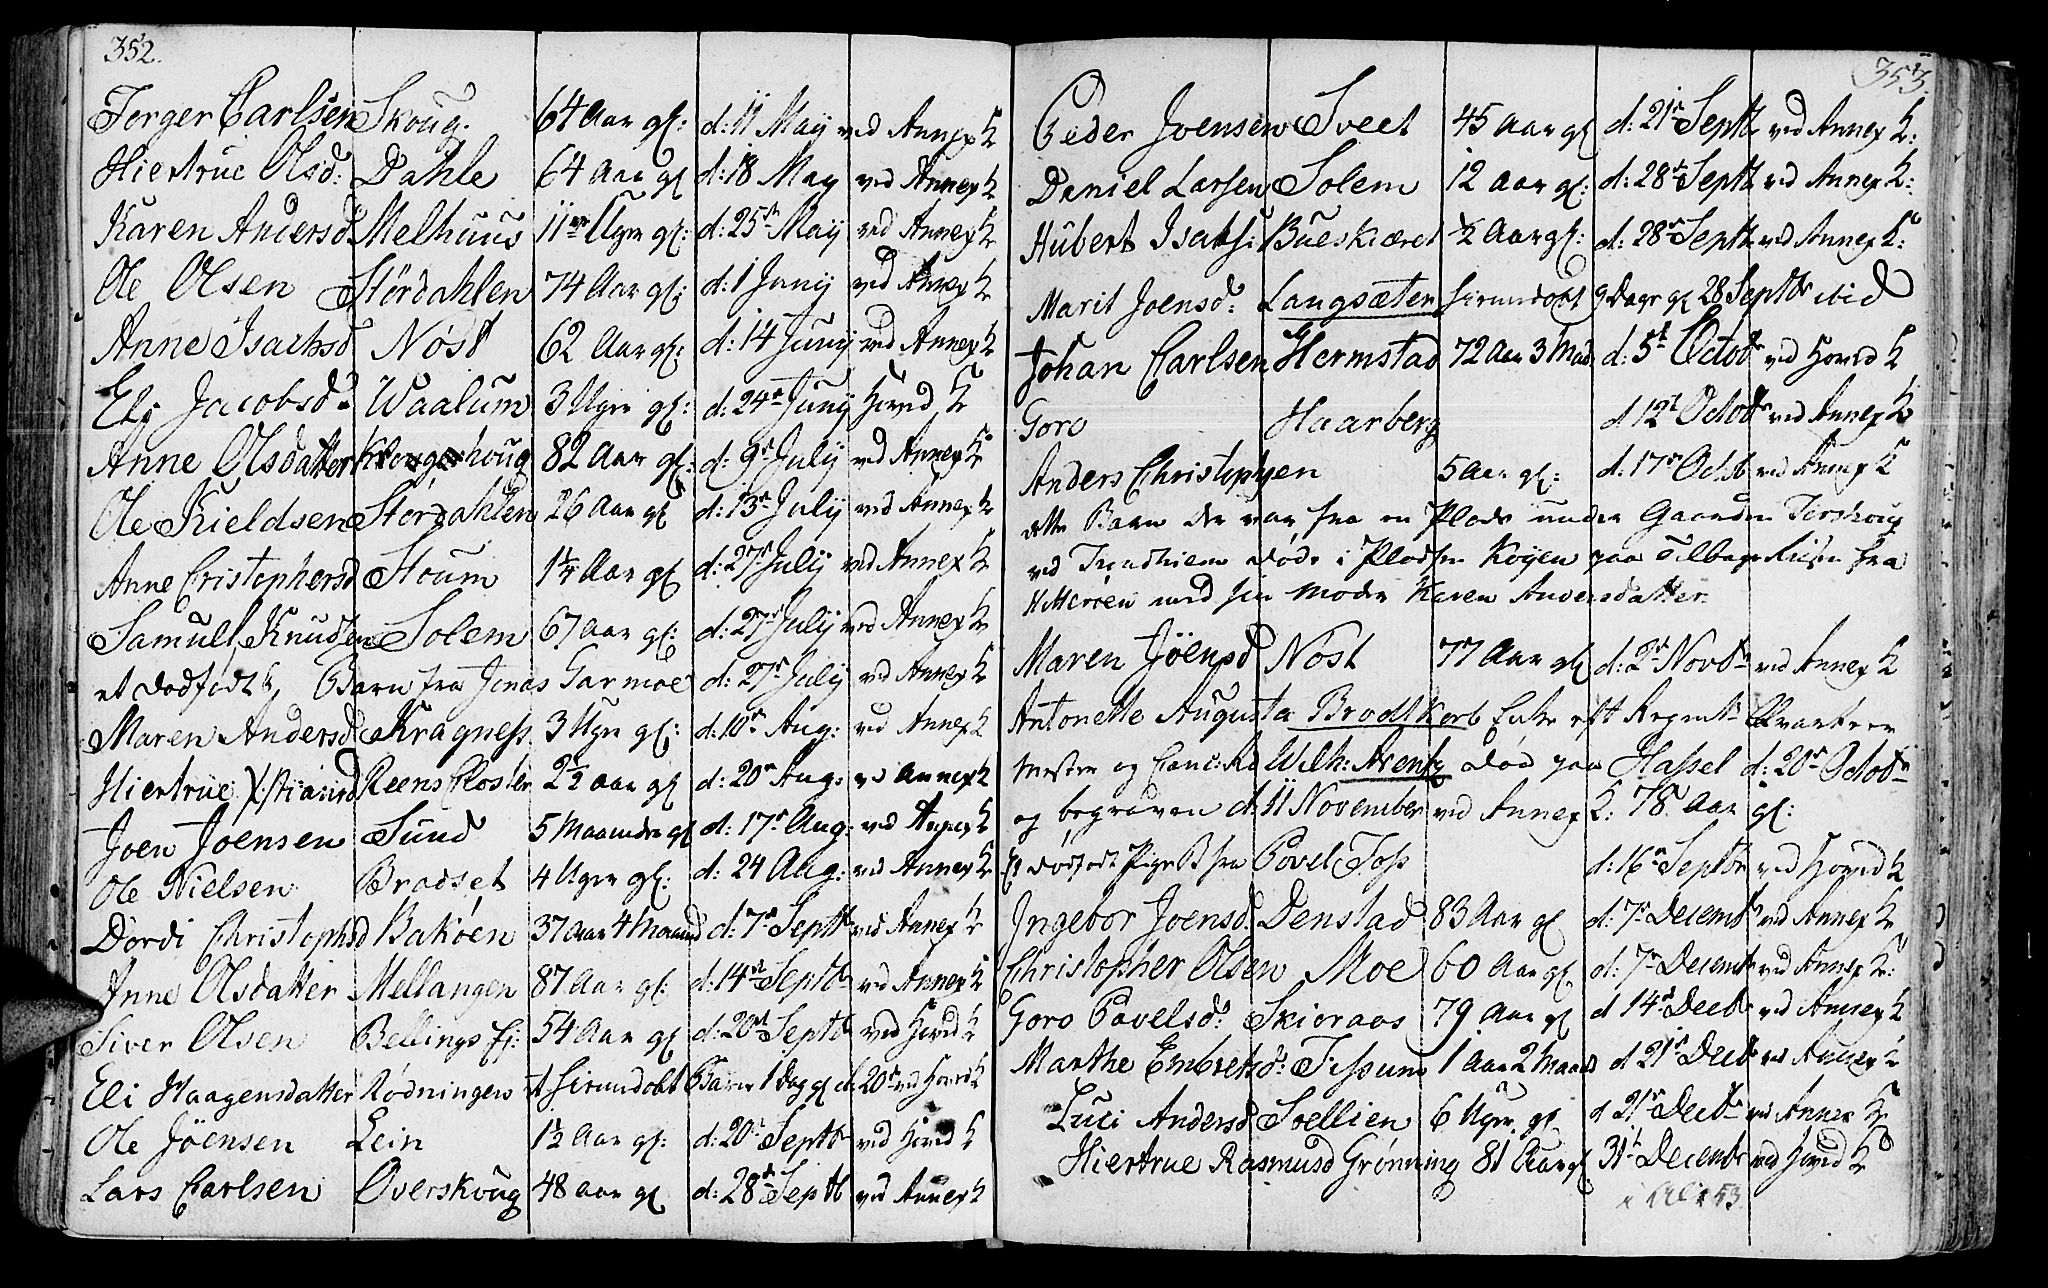 352.
Torger Carlsen Skoug. 64 Aar gl: d: 11 May ved Annex K
Hiertrue Olsd: Dahle 64 Aar gl d: 18 May ved Annex K
Karen Andersd Melhuus 11 Uger gl: d: 25 May ved Annex K
Ole Olsen Stördahlen 74 Aar gl: d: 1 Juny ved Annex K
Anne Isachsd Nöst 62 Aar gl: d: 14 Juny ved Annex K
Eli Jacobsd: Waalum 3 Uger gl: d: 24 Juny Hoved K
Anne Olsdatter 82 Aar gl: d: 9 July ved Annex K
Ole Kieldsen Stördahlen 26 Aar gl d: 13 July ved Annex K
Anne Cristophersd Stoum 1 1/4 Aar gl d: 27 July ved Annex K
Samuel Knudsen Solem 67 Aar gl: d: 27 July ved Annex K
et dödfödt Barn fra Jonas Garmoe d: 27 July ved Annex K
Maren Andersd Kragness 3 Uger gl: d: 10 Aug: ved Annex K
Hiertrue Reens Closter 2 1/2 Aar gl d: 20 Aug: ved Annex K
Joen Joensen Sund 5 Maaneder gl d: 17 Aug: ved Annex K
Ole Nielsen Bradset 4 Uger gl: d: 24 Aug: ved Annex K
Dordi Christophsd Baköen 37 Aar 4 Maaned d: 7 Septb ved Annex K
Anne Olsdatter Mellangen 87 Aar gl: d: 14 Septb ved Annex K
Siver Olsen Bellings fj: 54 Aar gl d: 20 Septb ved Hoved K
Eli Haagensdatter Rödningen et hiemdöbt Barn 1 Dag gl d 20 ved Hoved K
Ole Jöensen Lein 1 1/2 Aar gl: d: 20 Septb ved Hoved K
Lars Carlsen Overskoug 48 Aar gl d: 28 Septb ved Annex K
353.
Peder Joensen Sveet 45 Aar gl d: 21 Septb ved Annex K:
Daniel Larsen Solem 12 Aar gl: d: 28 Septb ved Annex K:
Hubert Isaks: Bueskiæret 1/2 Aar gl: d: 28 Septb ved Annex K:
Marit Joensd: Langsæter hiemdöbt 9 Dage gl 28 Septb ibid
Johan Carlsen Hermstad 72 Aar 3 Mad d: 5 Octob ved Hoved K
Goro Haarberg d 12 Octob ved Annex K
Anders Christophsen 5 Aar gl: d: 17 Octob ved Annex K
dette Barn der var fra en Plads under Gaarden
ved Trondhiem döde i Pladsen Kögen paa Tilbage Reisen fra
Hitteröen med sin Moder Karen Andersdatter.
Maren Jöensd Nöst 77 Aar gl d: 2 Novb ved Annex K
Antonette Augusta Brodtkorb Enke eft Regmts Qvarteer
mester og Canc: Rd Wilh: Arentz död paa Hassel d: 20 Octob
og begraven d: 11 November ved Annex K: 78 Aar gl:
Et dödfödt Pige B fra Povel Foss d: 16 Septbr ved Hoved K
Ingebor Joensd Denstad 83 Aar gl d: 7 Decemb ved Annex K
Christopher Olsen Moe 60 Aar gl d: 7 Decemb ved Annex K:
Goro Pavelsd: Skieraas 79 Aar gl d 14 Decb ved Annex K
Marthe Embretsd: Tissum 1 Aar 2 Maand d 21 Decb ved Annex K
Luci Andersd Soellien 6 Uger gl d 21 Decb ved Annex K
Hiertrue Rasmusd Grönning 81 Aar gl 31 Decemb ved Hoved K